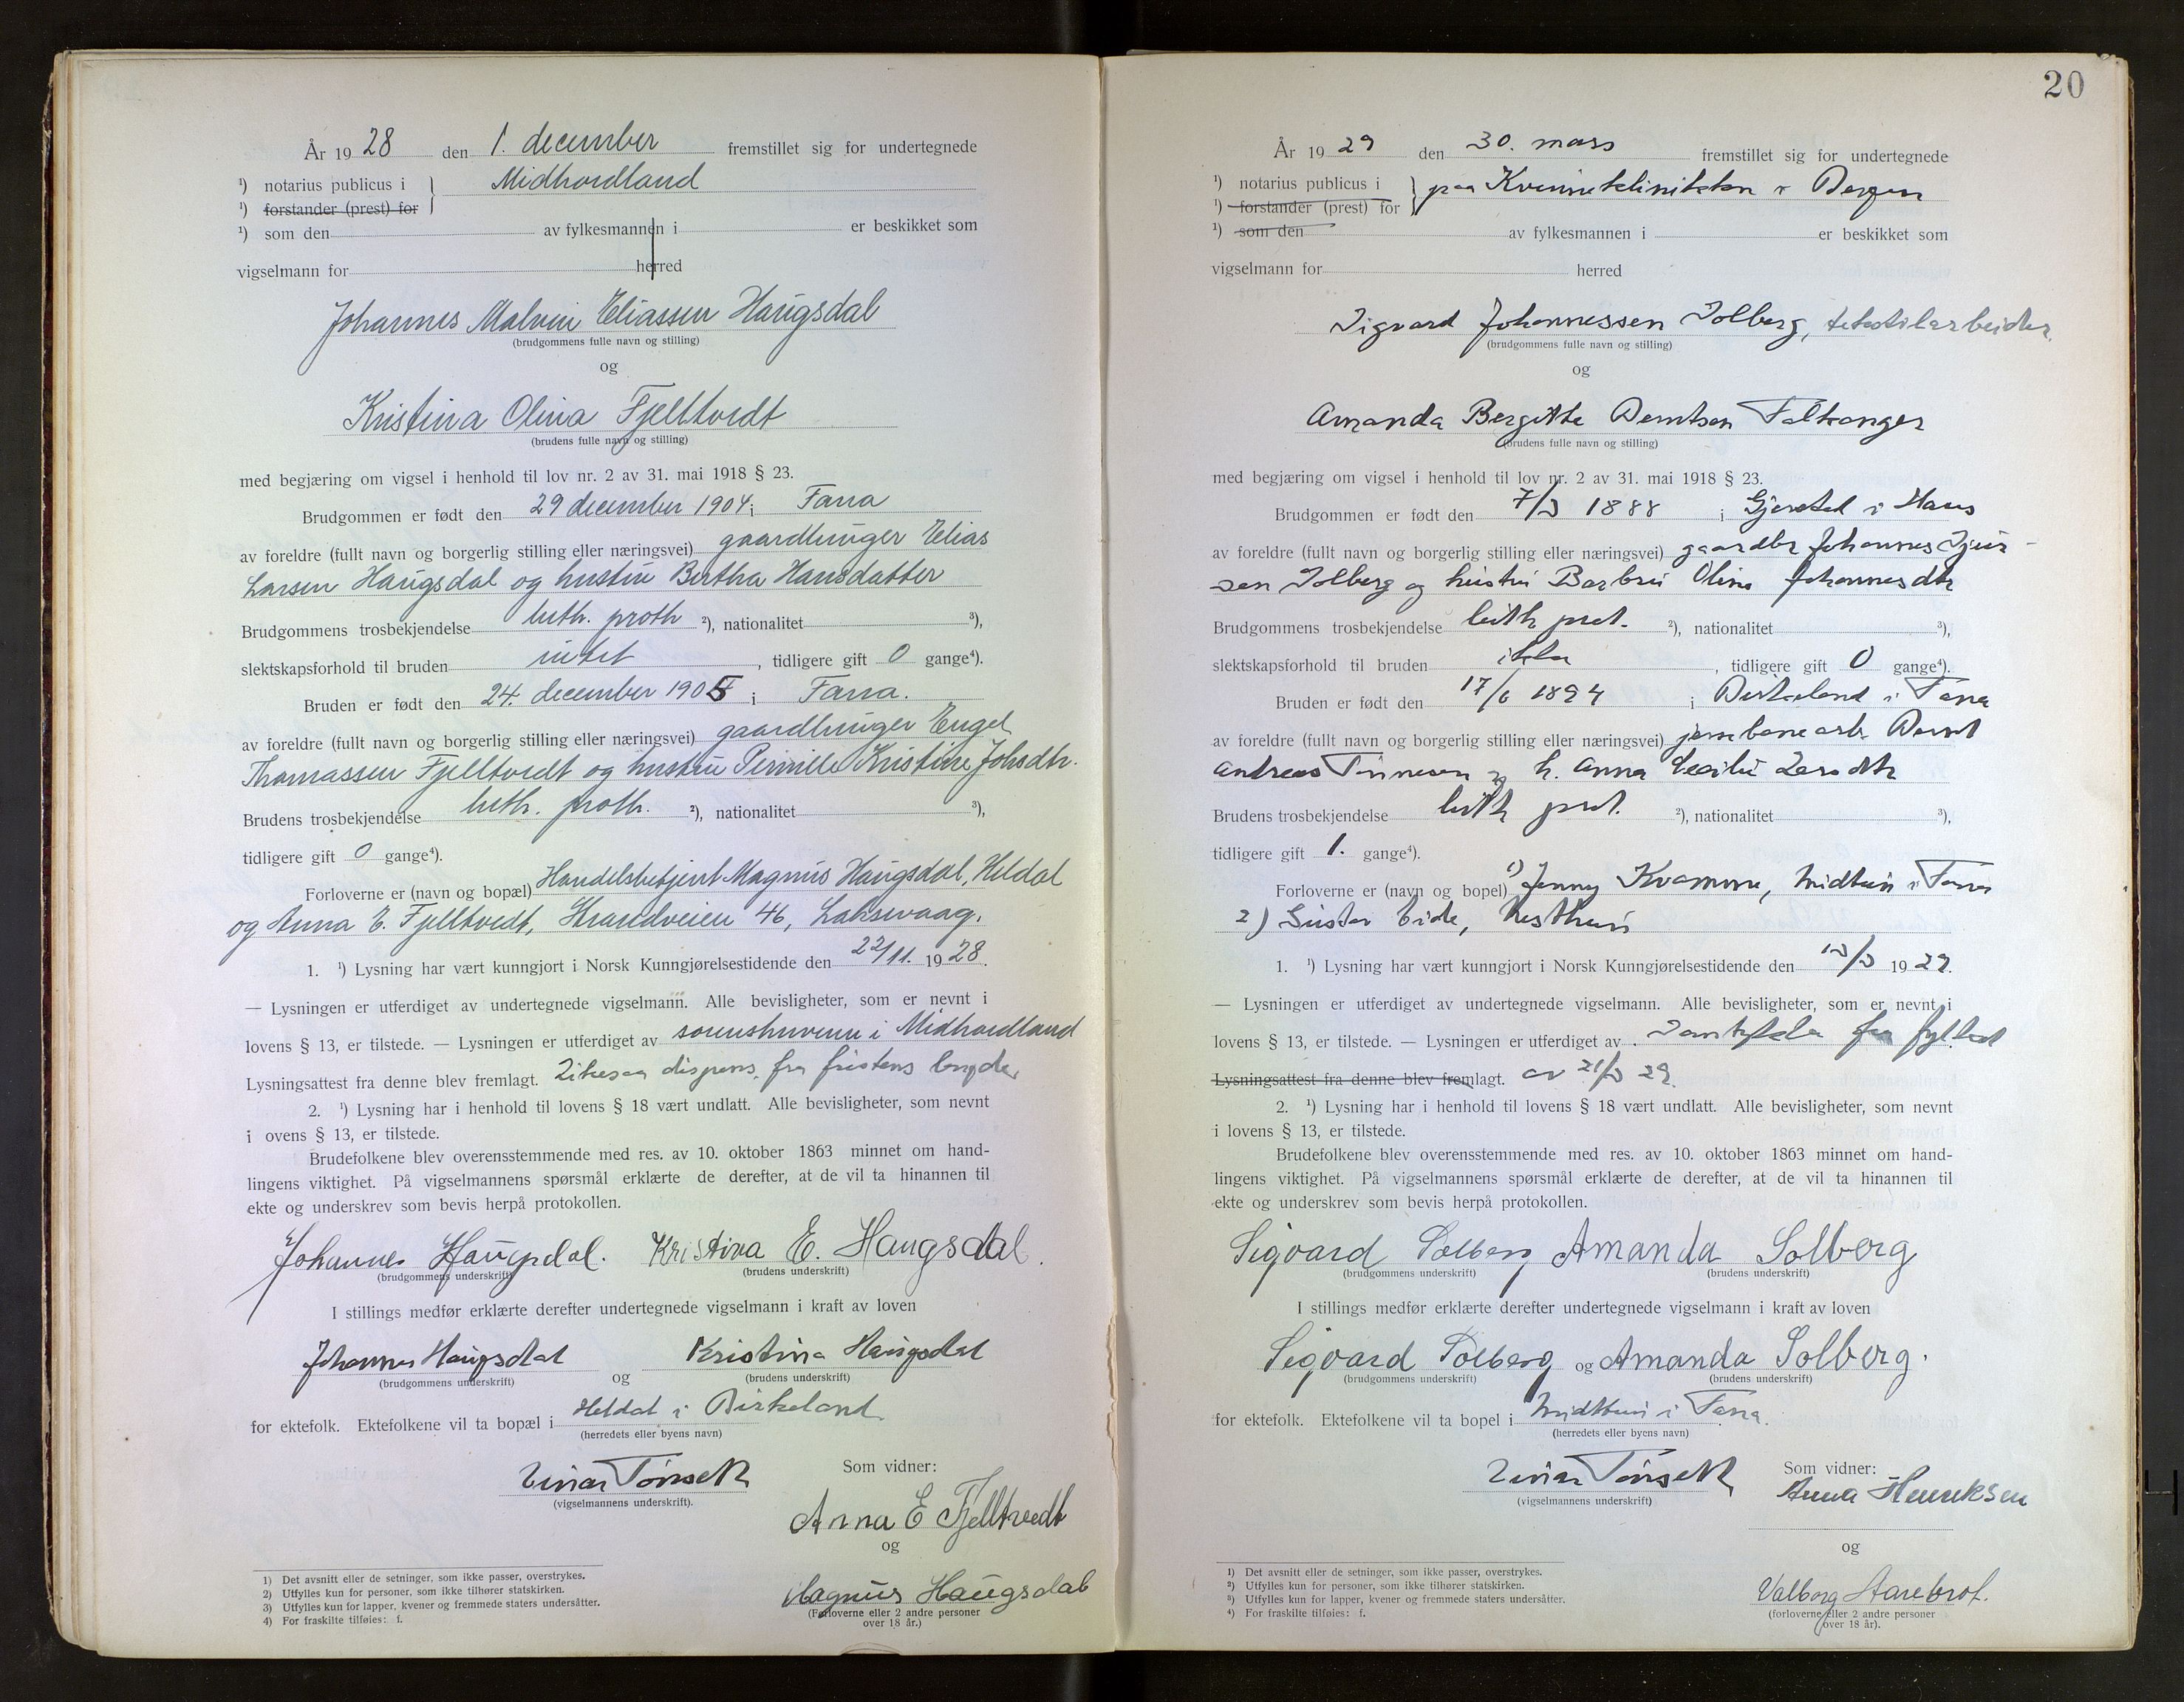 År 19 28 den 1. december fremstillet sig for undertegnede
¹) notarius publicus i Midhordland
¹) forstander (prest) for
¹) som den av fylkesmannen i er beskikket som
vigselmann for herred
Johannes Malvin Eliassen Haugsdal
(brudgommens fulle navn og stilling)
og
Kristina Olina Fjelltvedt
(brudens fulle navn og stilling)
med begjæring om vigsel i henhold til lov nr. 2 av 31. mai 1918 § 23.
Brudgommen er født den 29 december 1904 i Fana
av foreldre (fullt navn og borgerlig stilling eller næringsvei) gaardbruger Elias
Larsen Haugsdal og hustru Bertha Hansdatter
Brudgommens trosbekjendelse luth. proth ²), nationalitet ³),
slektskapsforhold til bruden intet , tidligere gift 0 gange⁴).
Bruden er født den 24. december 1905 i Fana.
av foreldre (fullt navn og borgerlig stilling eller næringsvei) gaardbruger Engel
Thomassen Fjelltvedt og hustru Pernille Kristine Johsdtr.
Brudens trosbekjendelse luth. proth. ²), nationalitet ³),
tidligere gift 0 gange⁴).
Forloverne er (navn og bopæl) Handelsbetjent Magnus Haugsdal, Heldal
og Anna E. Fjelltvedt, Strandveien 46, Laksevaag.
1. ¹) Lysning har vært kunngjort i Norsk Kunngjørelsestidende den 22/11. 19 28.
— Lysningen er utferdiget av undertegnede vigselmann. Alle bevisligheter, som er nevnt i
lovens § 13, er tilstede. — Lysningen er utferdiget av sorenskriveren i Midhordland
Lysningsattest fra denne blev fremlagt. Likesaa dispens. fra fristens lengde.
2. ¹) Lysning har i henhold til lovens § 18 vært undlatt. Alle bevisligheter, som nevnt
i ovens § 13, er tilstede.
Brudefolkene blev overensstemmende med res. av 10. oktober 1863 minnet om hand-
lingens viktighet. På vigselmannens spørsmål erklærte de derefter, at de vil ta hinannen til
ekte og underskrev som bevis herpå protokollen.
Johannes Haugsdal. Kristina E. Haugsdal.
(brudgommens underskrift) (brudens underskrift)
I stillings medfør erklærte derefter undertegnede vigselmann i kraft av loven
Johannes Haugsdal og Kristina Haugsdal
(brudgommens underskrift) (brudens underskrift)
for ektefolk. Ektefolkene vil ta bopæl i Heldal i Birkeland
(herredets eller byens navn)
Einar Tönseth
(vigselmannens underskrift).
Som vidner:
Anna E Fjelltvedt
og
Magnus Haugsdal
(Forloverne eller 2 andre personer
over 18 år.)
1) Det avsnitt eller de setninger, som ikke passer, overstrykes.
2) Utfylles kun for personer, som ikke tilhører statskirken.
3) Utfylles kun for lapper, kvener og fremmede staters undersåtter.
4) For fraskilte tilføies: f.
20
År 19 29 den 30. mars fremstillet sig for undertegnede
¹) notarius publicus i paa Kvinneklinikken i Bergen
¹) forstander (prest) for
¹) som den av fylkesmannen i er beskikket som
vigselmann for herred
Sigvard Johannessen Solberg, tekstilarbeider.
(brudgommens fulle navn og stilling)
og
Amanda Bergitte Berntsen Faltranger
(brudens fulle navn og stilling)
med begjæring om vigsel i henhold til lov nr. 2 av 31. mai 1918 § 23.
Brudgommen er født den 7/3 1888 i Gjerstad i Haus
av foreldre (fullt navn og borgerlig stilling eller næringsvei) gaardbr Johannes
sen Solberg og hustru Barbru Olina Johannesdtr
Brudgommens trosbekjendelse luth prot. ²), nationalitet ³),
slektskapsforhold til bruden ikke , tidligere gift 0 gange⁴).
Bruden er født den 17/6 1894 i Birkeland i Fana
av foreldre (fullt navn og borgerlig stilling eller næringsvei) jernbanearb. Bernt
Andreas Tinnesen og h. Anna Cecilie Larsdtr
Brudens trosbekjendelse luth prot. ²), nationalitet ³),
tidligere gift 1. gange⁴).
Forloverne er (navn og bopel) 1) Jenny Kvamme, Midttun i Fana
2) Gustav Eide, Nesttun
1. ¹) Lysning har vært kunngjort i Norsk Kunngjørelsestidende den 13/3 19 29.
— Lysningen er utferdiget av undertegnede vigselmann. Alle bevisligheter, som er nevnt i
lovens § 13, er tilstede. — Lysningen er utferdiget av . Samtykke fra fylket
Lysningsattest fra denne blev fremlagt. av 21/3 29.
2. ¹) Lysning har i henhold til lovens § 18 vært undlatt. Alle bevisligheter, som nevnt
i lovens § 13, er tilstede.
Brudefolkene blev overensstemmende med res. av 10. oktober 1863 minnet om hand-
lingens viktighet. På vigselmannens spørsmål erklærte de derefter, at de vil ta hinannen til
ekte og underskrev som bevis herpå protokollen.
Sigvard Solberg Amanda Solberg
(brudgommens underskrift) (brudens underskrift)
I stillings medfør erklærte derefter undertegnede vigselmann i kraft av loven
Sigvard Solberg og Amanda Solberg.
(brudgommens underskrift) (brudens underskrift)
for ektefolk. Ektefolkene vil ta bopel i Midttun i Fana.
(herredets eller byens navn)
Einar Tönseth
(vigselmannens underskrift)
Som vidner:
Anna Henriksen
og
Valborg Aarebrot.
(forloverne eller 2 andre personer
over 18 år).
¹) Det avsnitt eller de setninger, som ikke passer, overstrykes.
²) Utfylles kun for personer, som ikke tilhører statskirken.
³) Utfylles kun for lapper, kvener og fremmede staters undersåtter.
⁴) For fraskilte tilføies: f.